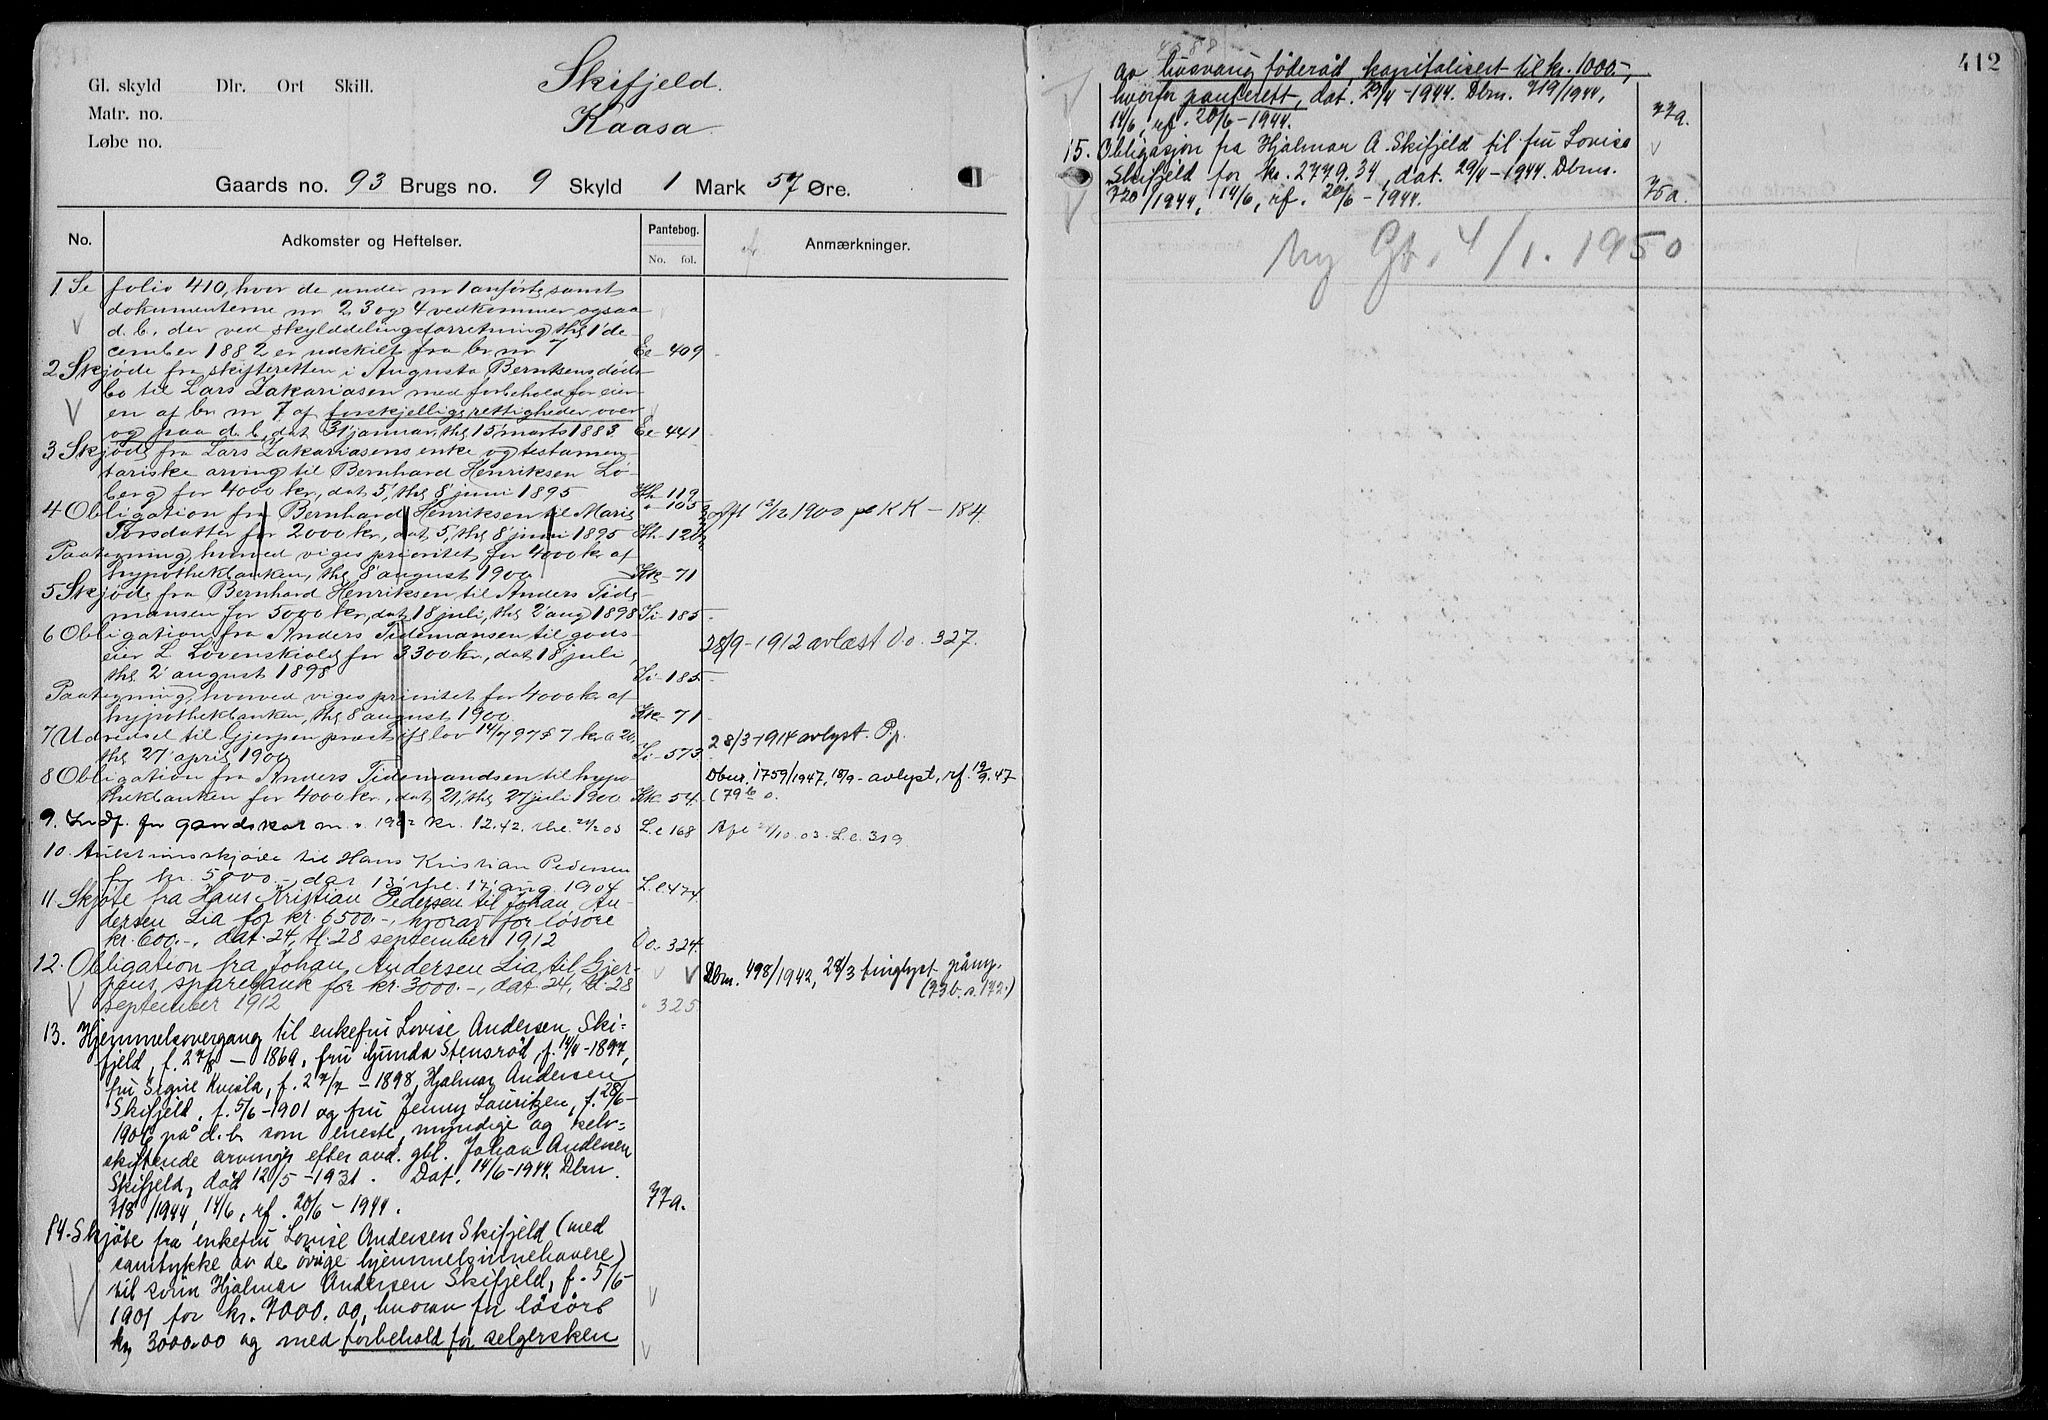 Gl. skyld Dlr. Ort Skill.
Matr. no.
Løbe no.
Skifjeld.
Kaasa
Gaards no. 93 Brugs no. 9 Skyld 1 Mark 57 Øre.
No. Adkomster og Heftelser. Pantebog. No. fol. Anmærkninger.
1 Se folio 410, hvor de under nr 1 anførte samt
dokumenterne nr 2, 3 og 4 vedkommer ogsaa
d. b. der ved skylddelingsforretning thl 1' de-
cember 1882 er udskilt fra br nr 7 Ee 409
2 Skjøde fra skifteretten i Augusta Berntsens døds-
bo til Lars Zakariasen med forbehold for eier-
en af br nr 7 af forskjellige rettigheder over
og paa d. b., dat 31' januar, thl 15' marts 1883 Ee 441
3 Skjøde fra Lars Zakariasens enke og testamen-
tariske arving til Bernhard Henriksen Lø-
berg for 4000 kr, dat 5', thl 8' juni 1895 Hh 119
4 Obligation fra Bernhard Henriksen til Maria " 105 afl 12/12 1900 pe KK - 184.
Torsdatter for 2000 kr, dat 5', thl 8' juni 1895 Hh 120
Paategning, hvorved viges prioritet for 4000 kr af
hypothekbanken, thl 8' august 1900 Kk 71
5 Skjøde fra Bernhard Henriksen til Anders Tide-
mansen for 5000 kr, dat 18' juli, thl 2' aug 1898 Ii 185
6 Obligation fra Anders Tidemansen til gods- 28/9-1912 avlæst Oo. 327.
eier L. Løvenskiold for 3300 kr, dat 18' juli,
thl 2' august 1898 Ii 185
Paategning, hvorved viges prioritet for 4000 kr af
hypothekbanken, thl 8' august 1900 Kk 71
7 Udredsel til Gjerpen præst ifl lov 14/7 97 57 kr 20 28/3-1914 avlyst. Pp.
thl 27' april 1900 Ii 573
8 Obligation fra Anders Tidemandsen til hypo- Dbnr. 1759/1947, 18/9 - avlyst, rf. 19/9. 47
thekbanken for 4000 kr., dat 21', thl 27' juli 1900 Kk 54 (79 b
9. Indf. for grundskat m. v. 1902 kr. 12.42. thl. 21/2 03 L.l 168 Afl 21/10. 03. L.l. 319
10. Auktionsskjøde til Hans Kristian Pedersen
for kr. 5000.- dat 13' thl. 17' aug. 1904 L.l 474
11. Skjøte fra Hans Kristian Pedersen til Johan An-
dersen Lia for kr. 6500.-, hvorav for løsøre
kr. 600.-, dat. 24, tl. 28 september 1912 Oo. 324.
12. Obligation fra Johan Andersen Lia til Gjer- Dbnr. 498/1942, 28/3 tinglyst
pens sparebank for kr. 3000.-, dat 24, tl. 28 (73 b. s. 172.)
september 1912 " 325
13. Hjemmelsovergang til enkefru Lovise Andersen Ski-
fjeld, f. 27/8 - 1869, fru Gunda Stensrød, f. 14/4-1897,
fru Signe Kvisla, f. 27/7 - 1898, Hjalmar Andersen
Skifjeld, f. 5/6-1901 og fru Jenny Lauritzen, f. 28/6-
1906 på d. b. som eneste, myndige og selv-
skiftende arvinger efter avd. gbl. Johan Andersen
Skifjeld, død 12/5-1931. Dat. 14/6-1944. Dbnr.
718/1944, 14/6, rf. 20/6-1944. 77a.
14. Skjøte fra enkefru Lovise Andersen Skifjeld (med
samtykke av de øvrige hjemmelsinnehavere)
til sønn Hjalmar Andersen Skifjeld, f. 5/6-
1901 for kr. 7000.00, hvorav for løsøre
kr. 3000.00 og med forbehold for selgersken
412
av husvang føderåd, kapitalisert til kr. 1000.-,
hvorfor panterett, dat. 29/4-1944. Dbnr. 719/1944,
14/6, rf. 20/6-1944. 77a.
15. Obligasjon fra Hjalmar A. Skifjeld til fru Lovise
Skifjeld for kr. 2779.34, dat. 29/4-1944. Dbnr.
720/1944, 14/6, rf. 20/6-1944. 75a.
Ny Gb. 4/1. 1950